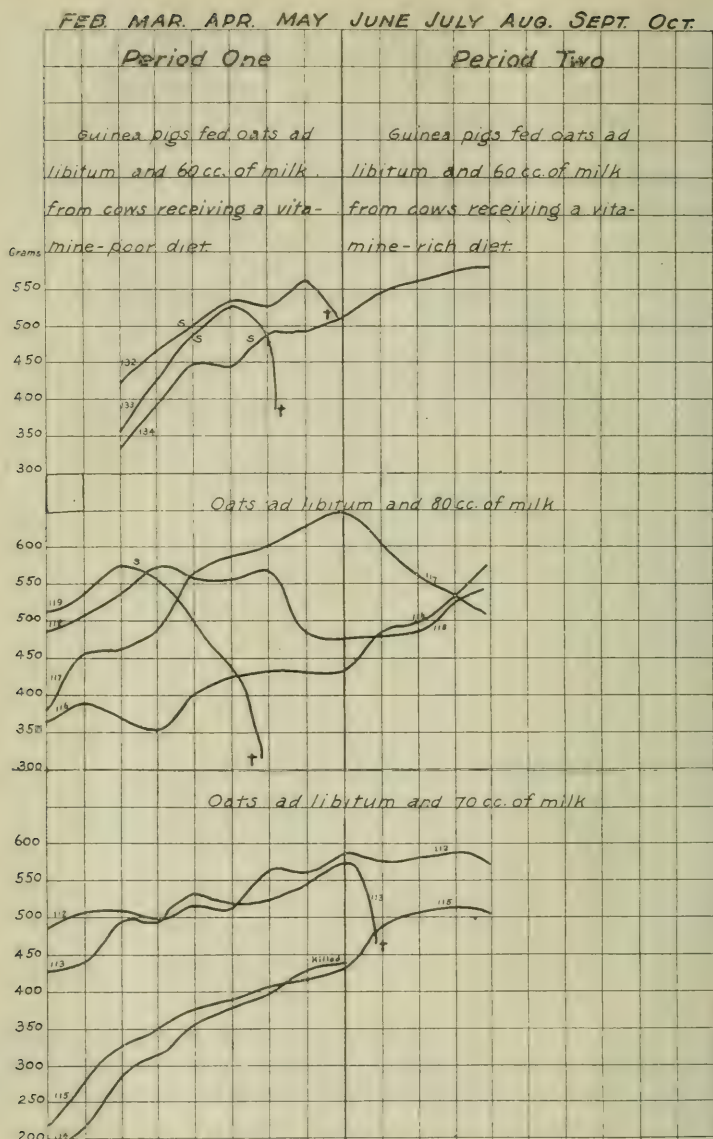 FEB. MAR. APR. MAY JUNE JULY AUG. SEPT. OCT.
Period One
Period Two
Guinea pigs fed oats ad
libitum and 60 cc. of milk
from cows receiving a vita-
mine-poor diet.
Guinea pigs fed oats ad
libitum and 60 cc. of milk
from cows receiving a vita-
mine-rich diet.
Grams
550
500
450
400
350
300
132
133
134
S
S
S
†
†
Oats ad libitum and 80 cc. of milk
600
550
500
450
400
350
300
119
118
117
116
S
†
117
118
Oats ad libitum and 70 cc. of milk
600
550
500
450
400
350
300
250
200
112
113
115
112
113
115
Killed
†